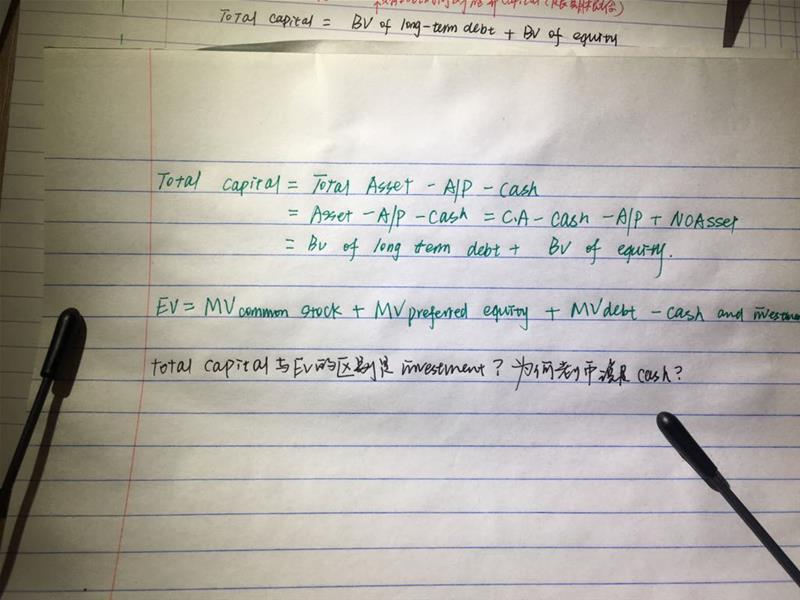 Total capital = BV of long-term debt + BV of equity
Total capital = Total Asset - A/P - cash
= Asset - A/P - cash = C.A - cash - A/P + NOAsset
= BV of long term debt + BV of equity.
EV = MV common stock + MV preferred equity + MV debt - cash and investme
total capital 与 EV 的区别是 investment? 为何 cash?